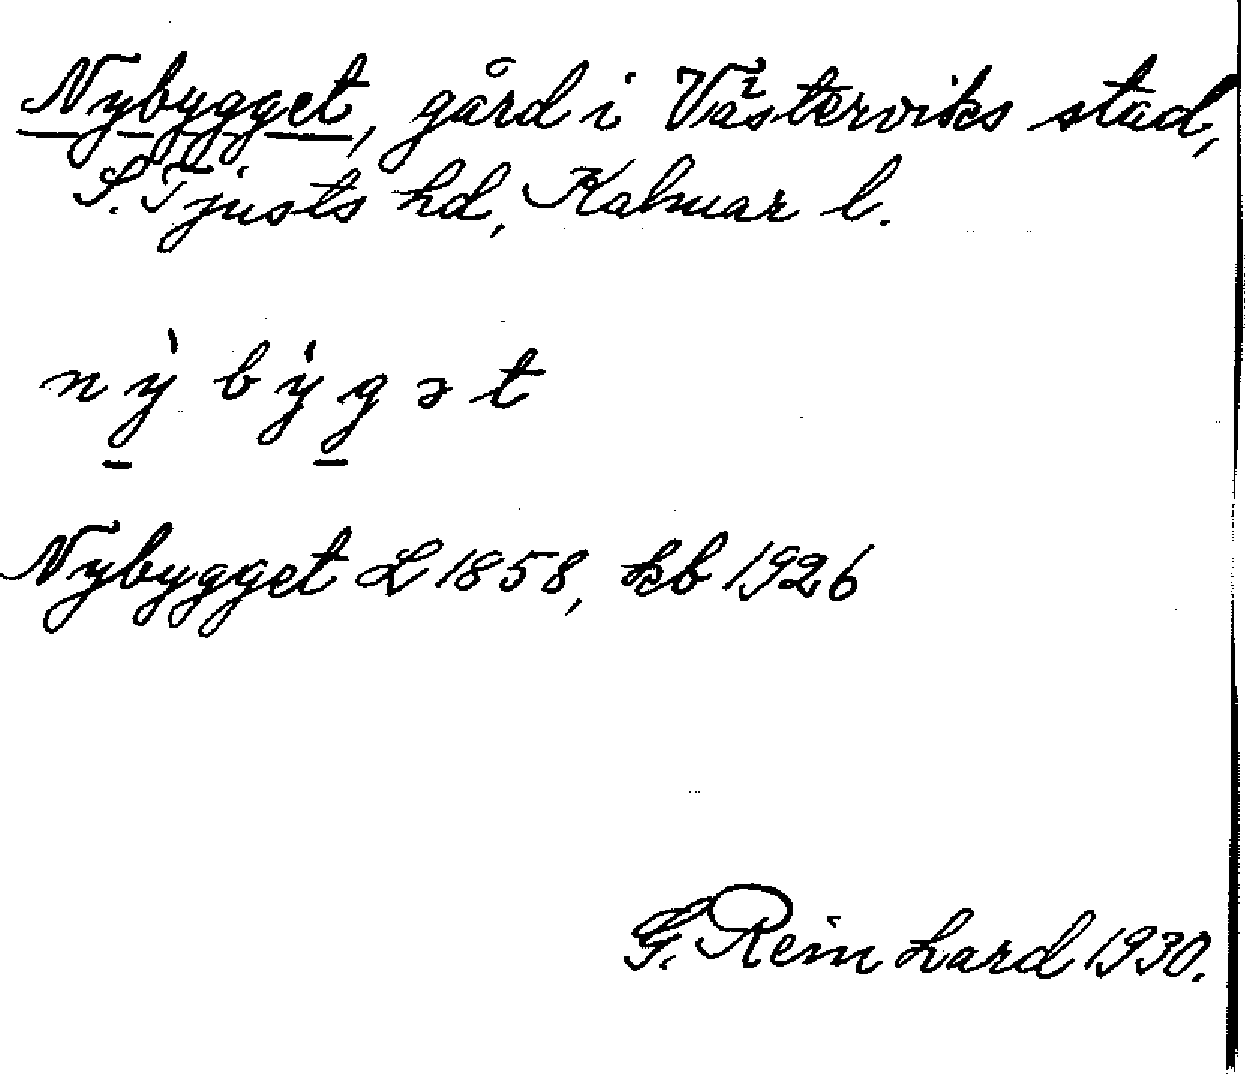 Nybygget, gård i Västerviks stad,
S. Tjusts hd, Kalmar l.
nỳbẏgət
Nybygget L 1858, kb 1926
G. Reinhard 1930.